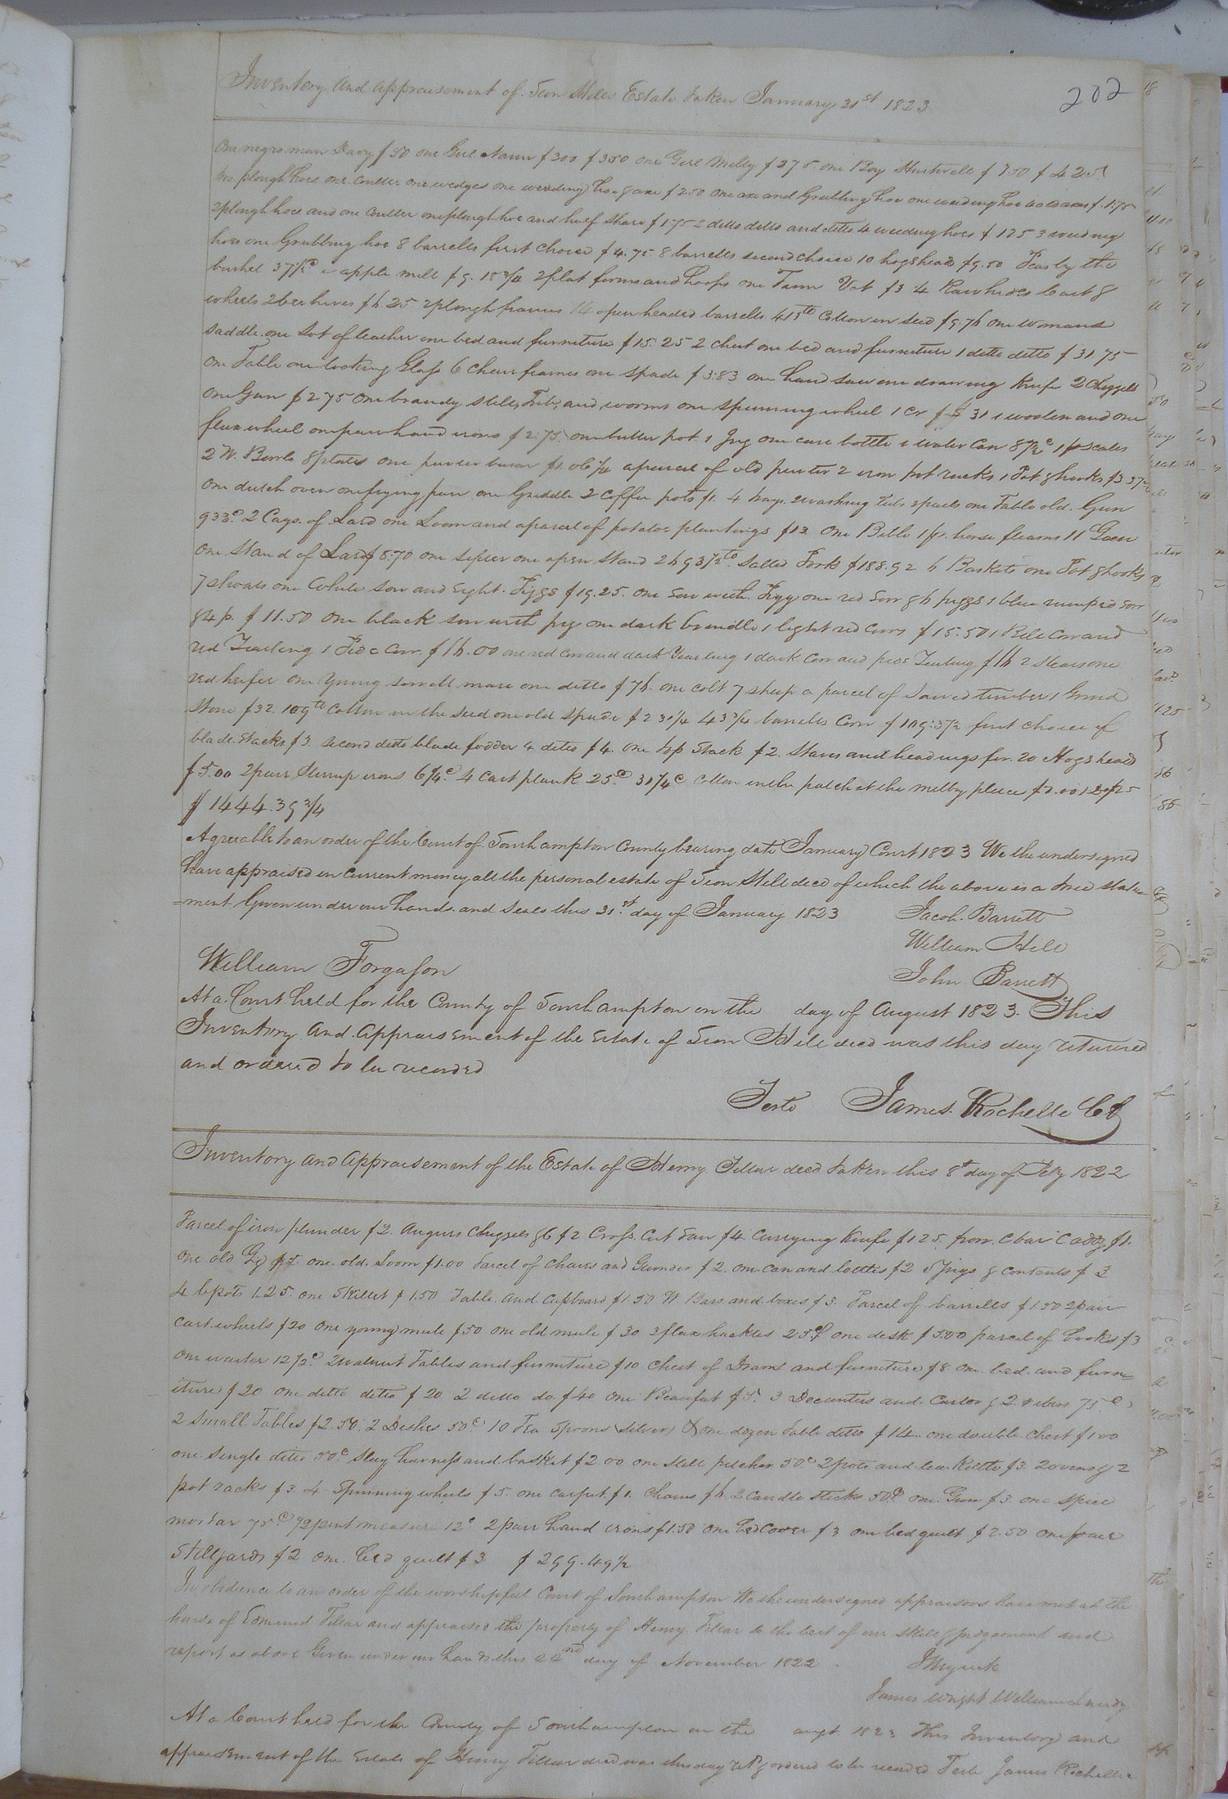 202
Inventory and appraisement of Sion Hills Estate taken January 31st 1823
One negro man Davy $50 one Girl $300 $350 one Girl Milly $275 one Boy $350 $425
plough hoe one Coulter one wedges one weeding hoe & axe $2.50 one axe and Grubbing hoe one weeding hoe
2 plough hoes and one Cutter one plough hoe and half Share $1.75 2 ditto ditto and ditto 4 weeding hoes $1.25 3 weeding
hoes one Grubbing hoe 8 barrells first choice $4.75 8 barrells second choice 10 hogsheads $9.50 Peas by the
bushel 37½c 1 apple mill $9. 2 flat forms and hoops one Tann Vat $3 4 Raw hides 1 cart &
wheels 2 bee hives $6.25 2 plough frames 14 open headed barrells Cotton in seed $9.76 one womans
saddle one Sot of leather one bed and furniture $15.25 2 chest one bed and furniture 1 ditto ditto $31.75
one Table one looking Glass 6 Chair frames one spade $3.83 one hand saw one drawing Knife 2 Chizzells
one Gun $2.75 one brandy still, Tubs, and worms one spinning wheel 1 woolen and one
flax wheel one pair hand irons $2.75 one butter pot 1 Jug one case bottle 1 water Can 8½c 1 pr scales
2 W. Bowls 8 plates one pewter bason a parcel of old pewter 2 iron pot racks 1 Pot & hooks
one dutch oven one frying pan one Griddle 2 Coffee pots $1. 4 bags 2 washing tubs 2 pails one Table old. Gun
93¾c 2 Cags of Lard one Loom and a parcel of potatoe plantings $13 One Bible 1 pr. horse fleams 11 Geese
one Stand of Lard $8.70 one sifter one open Stand salted Pork $188.92 6 Baskets one Pot & hooks
7 shoats one White sow and eight Piggs $19.25. one Sow with Pigg one red Sow & 6 piggs 1 blue rumped sow
& 4 p. $11.50 one black sow with pig one dark brindle 1 light red Cows $15.50 1 Pide Cow and
red Yearling 1 Pide Cow $16.00 one red Cow and dark Yearling 1 dark Cow and pide Yearling $16 2 Stears one
red heifer one young sorrell mare one ditto $76. one colt 7 sheep a parcel of sawed timber 1 Grind
Stone $32. Cotton in the seed one old spade barrells Corn first choice of
blade Stacks $3. second ditto blade fodder 4 ditto $4. one top Stack $2. Staves and headings for 20 Hogshead
$5.00 2 pair Sterrup irons 6¼c 4 Cart plank 25c 31¼c Cotton in the patch at the Milby place
$1444.39¾
Agreeable to an order of the Court of Southampton County bearing date January Court 1823 We the undersigned
have appraised in Current money all the personal estate of Sion Hill decd of which the above is a true state
=ment Given under our hands and seals this 31st day of January 1823 Jacob Barrett
William Hill
William Forgason John Barrett
At a Court held for the County of Southampton on the day of August 1823. This
Inventory and Appraisement of the Estate of Sion Hill decd was this day returned
and ordered to be recorded
Teste James Rochelle CC
Inventory and Appraisement of the Estate of Henry Tillar decd taken this 8th day of Feby 1822
Parcel of iron plunder $2. Augurs Chizzels &C $2 Cross Cut Saw $4. Currying Knife $1.25
one old one old Loom $1.00 Parcel of Chairs and $2. one Can and bottles $2 5 Jugs & Contents $3
4 pots 1.25. one Skillet $1.50 Table and Cupboard $1.50 and boxes $5. Parcel of barrells $1.50 2 pair
Cart wheels $20 One young mule $50 one old mule $30 3 flax hackles 25c one desk $5.00 parcel of books $3
One waiter 12½c 2 walnut Tables and furniture $10 chest of Drawers and furniture $8 one bed and furn
iture $20 one ditto ditto $20 2 ditto do. $40 One Beaufat $5. 3 Decanters and Castor $2 75c
2 Small Tables $2.50. 2 Dishes 50c 10 Tea Spoons silver & one dozen table ditto $14 one double chest $1.00
one single ditto 50c Slay harness and basket $2.00 one still pitcher 50c 2 pots and tea Kittle $3. 2 ovens & 2
pot racks $3 4 Spinning wheels $5. one carpet $1. Chairs $6. 2 Candle sticks 50c one Gun $3. one Spice
mortar 75c pint measure 12c 2 pair hand irons $1.50 one bed cover $3 one bed quilt $2.50 one pair
Stillyards $2 one bed quilt $3 $299.49½
In obedience to an order of the worshipful Court of Southampton We the undersigned appraisors have met at the
house of Edmund Tillar and appraised the property of Henry Tillar to the best of our Skill & Judgement and
report as above Given under our hands this day of November 1822.
James Wright William
At a Court held for the County of Southampton on the augt 1823 This Inventory and
appraisement of the Estate of Henry Tillar decd was this day & ordered to be recorded Teste James Rochelle